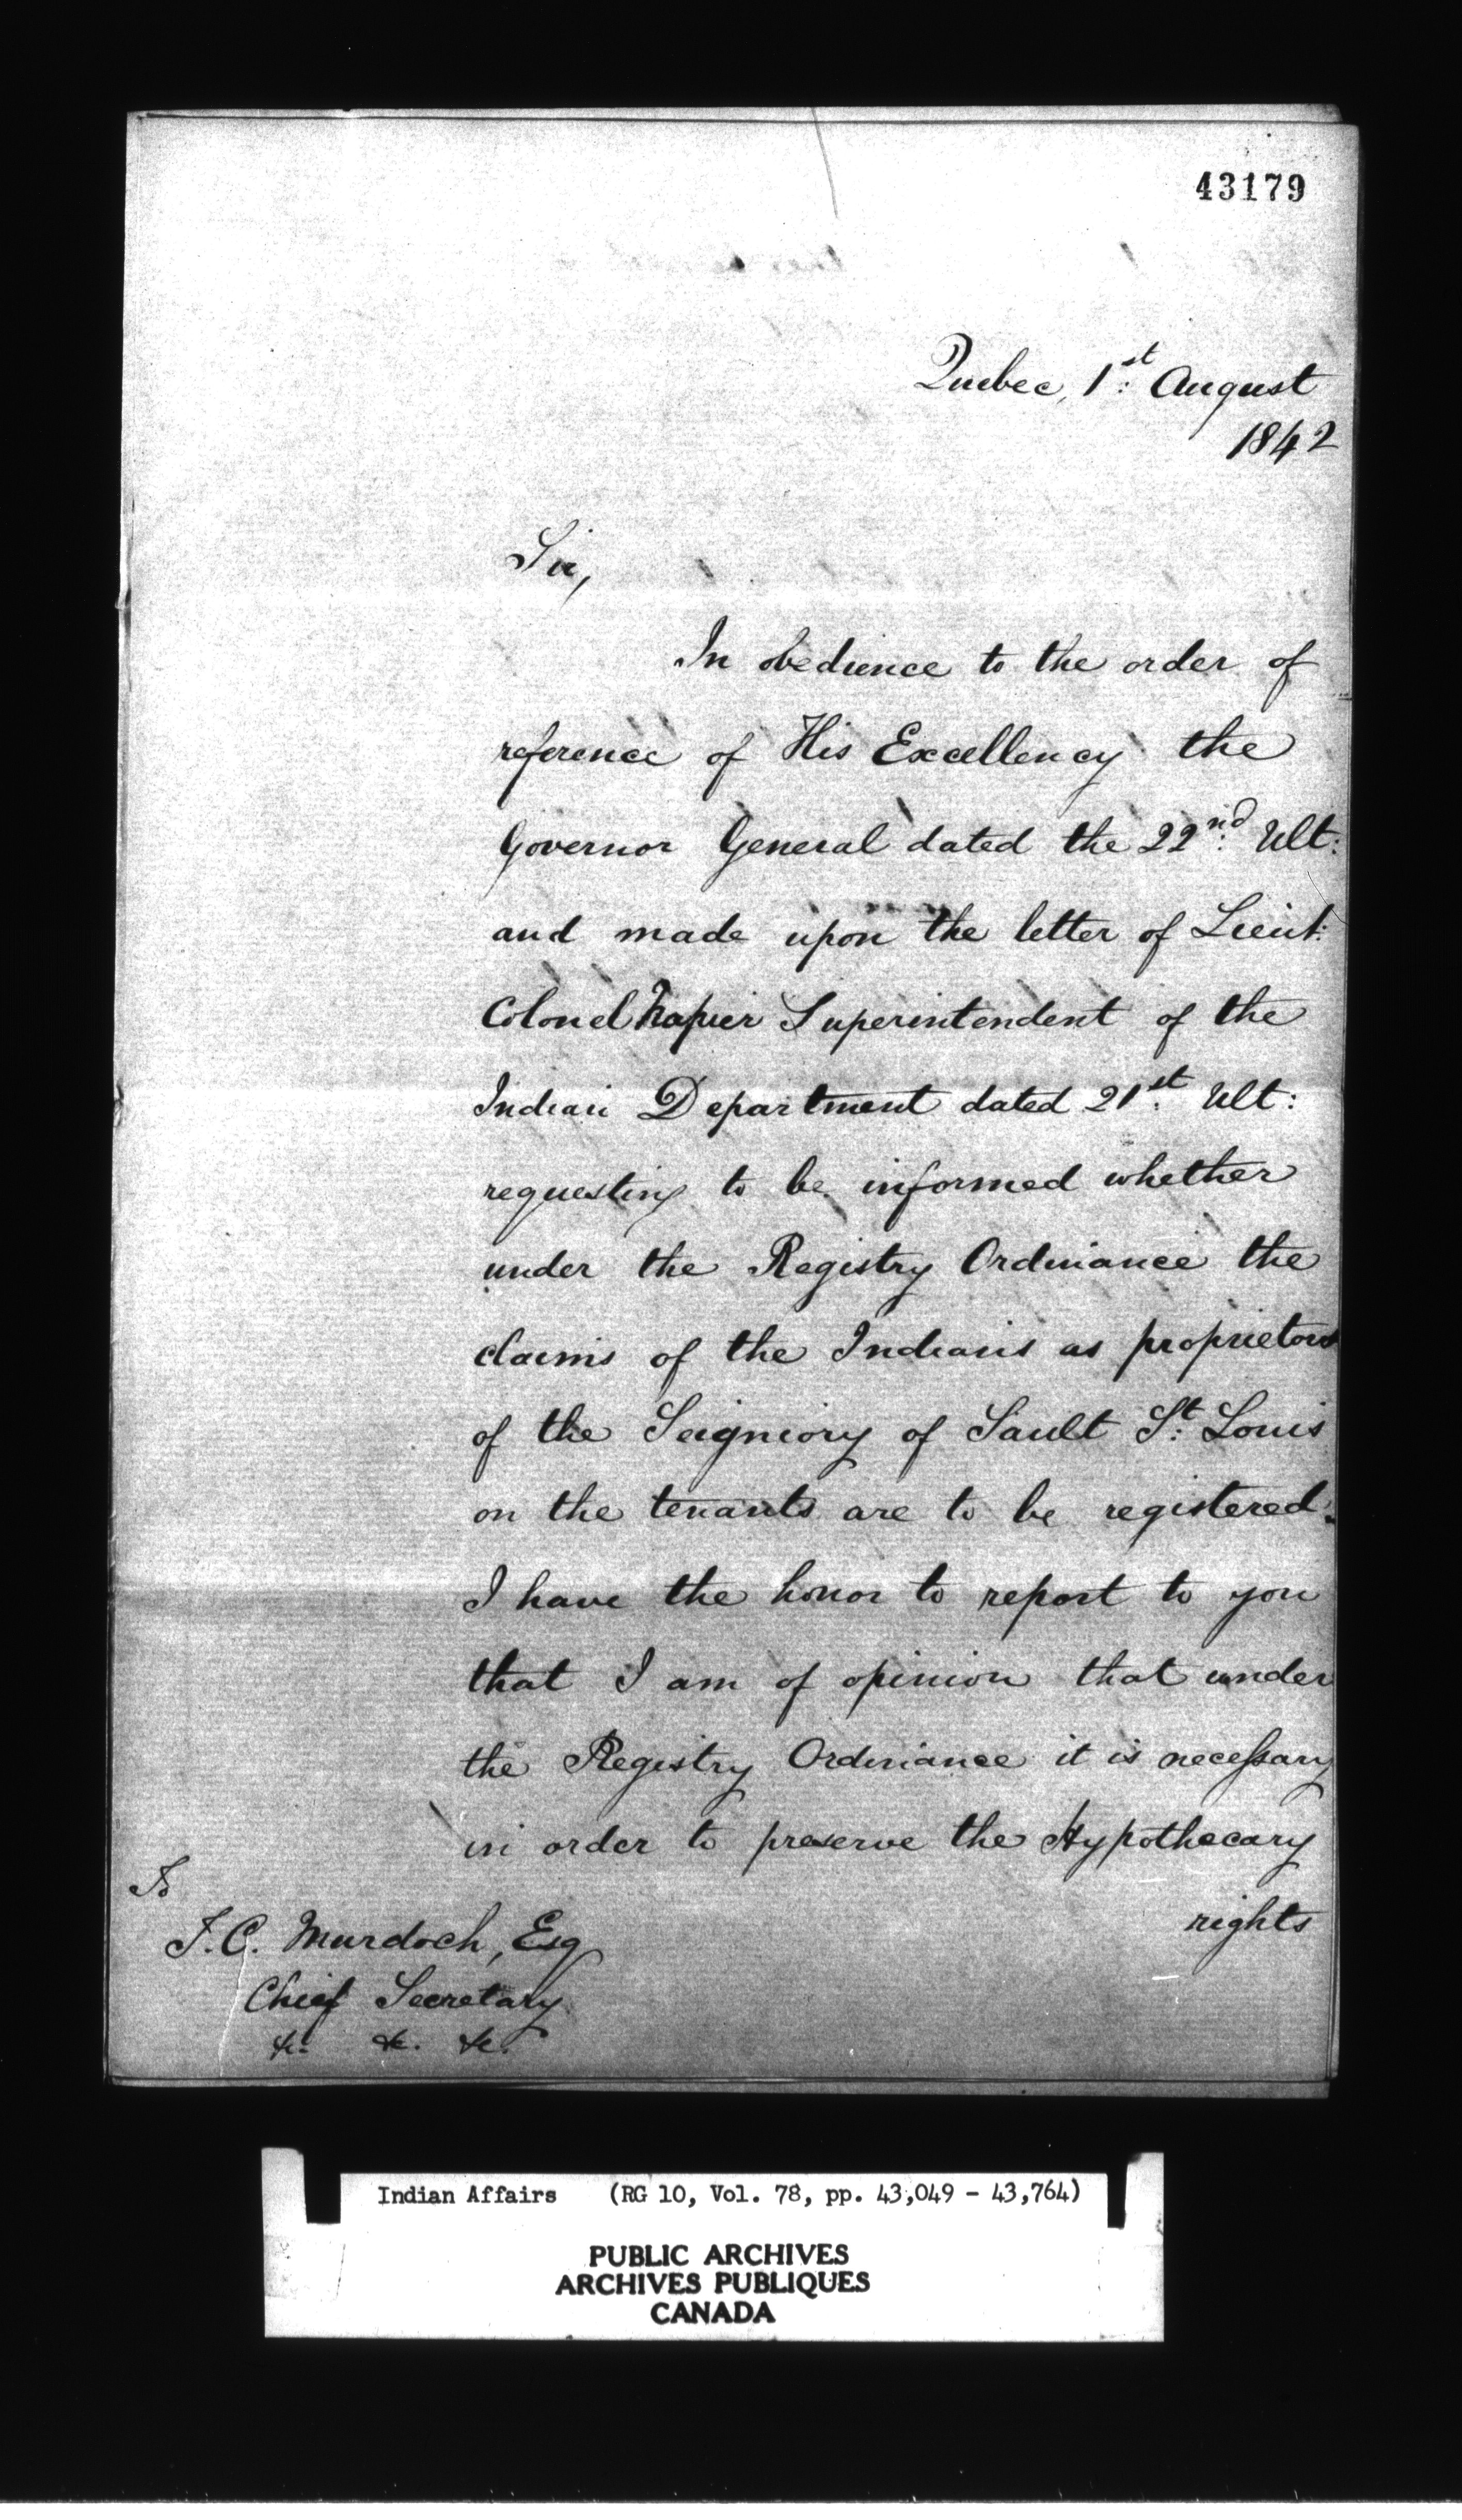 43179
Quebec, 1st: August
1842
Sir,
In obedience to the order of
reference of His Excellency the
Governor General dated the 22nd. Ult:
and made upon the letter of Lieut:
Colonel Napier Superintendent of the
Indian Department dated 21st. Ult:
requesting to be informed whether
under the Registry Ordinance the
claims of the Indians as proprietors
of the Seigniory of Sault St: Louis
on the tenants are to be registered.
I have the honor to report to you
that I am of opinion that under
the Registry Ordinance it is necessary
in order to preserve the Hypothecary
rights
To
T. C. Murdoch, Esq
Chief Secretary
&c. &c. &c.
Indian Affairs (RG 10, Vol. 78, pp. 43,049 - 43,764)
PUBLIC ARCHIVES
ARCHIVES PUBLIQUES
CANADA